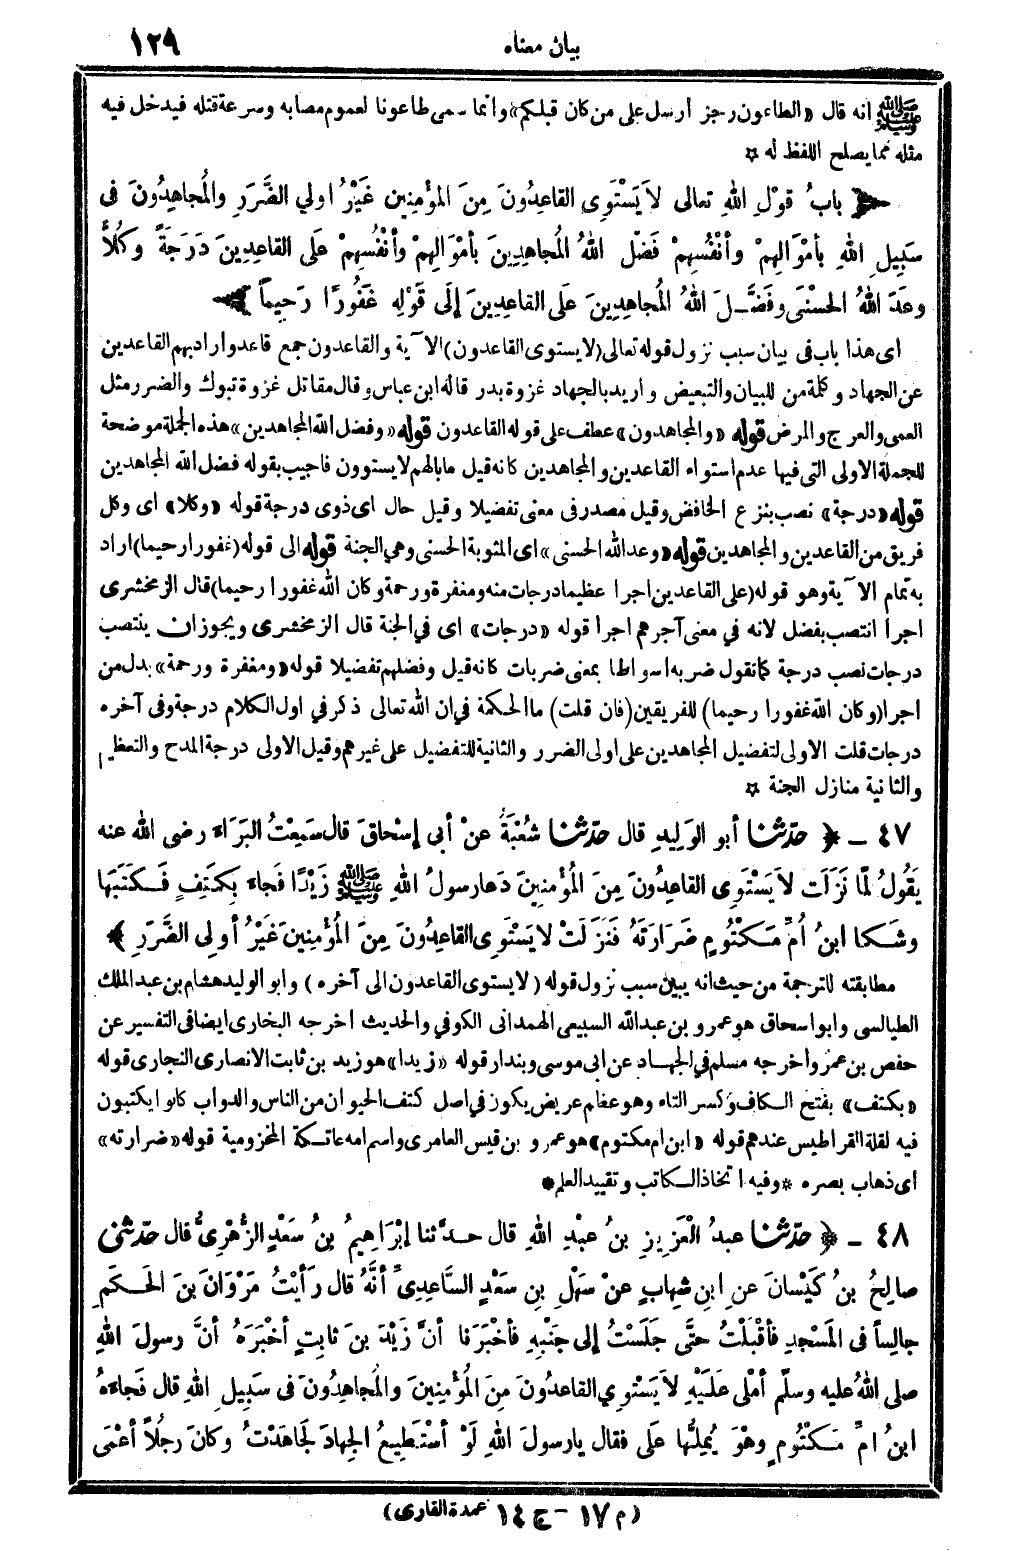 بيان معناه ١٢٩
ﷺ انه قال «الطاعون رجز ارسل على من كان قبلكم» وانما سمى طاعونا لعموم مصابه وسرعة قتله فيدخل فيه
مثله مما يصلح اللفظ له ☆
بابُ قَوْلِ اللهِ تعالى لاَ يَسْتَوِي القاعِدُونَ مِنَ المُؤْمِنِين غَيْرُ اولي الضَّرَرِ والُمجاهِدُونَ فى
سَبِيلِ اللهِ بأمْوَالِهِمْ وأنْفُسِهِمْ فَضّلَ اللهُ المُجاهِدِينَ بأمْوَالِهِمْ وأنْفُسِهِمْ على القاعِدِينَ دَرَجَةً وَكُلاًّ
وعَدَ اللهُ الحُسْنَى وفَضَّـلَ اللهُ المُجاهِدِينَ عَلَى القاعِدِينَ إلَى قَوْلِهِ غَفُورًا رَحِيماً
اى هذا باب فى بيان سبب نزول قوله تعالى (لا يستوى القاعدون) الآية والقاعدون جمع قاعد واراد بهم القاعدين
عن الجهاد وكلمة من للبيان والتبعيض واريد بالجهاد غزوة بدر قاله ابن عباس وقال مقاتل غزوة تبوك والضرر مثل
العمى والعرج والمرض قوله «والمجاهدون» عطف على قوله القاعدون قوله «وفضل الله المجاهدين» هذه الجملة موضحة
للجملة الاولى التى فيها عدم استواء القاعدين والمجاهدين كانه قيل ما بالهم لا يستوون فاجيب بقوله فضل الله المجاهدين
قوله «درجة» نصب بنزع الخافض وقيل مصدر فى معنى تفضيلا وقيل حال اى ذوى درجة قوله «وكلا» اى وكل
فريق من القاعدين والمجاهدين قوله «وعد الله الحسنى» اى المثوبة الحسنى وهي الجنة قوله الى قوله (غفورا رحيما) اراد
به تمام الآية وهو قوله (على القاعدين اجرا عظيما درجات منه ومغفرة ورحمة وكان الله غفورا رحيما) قال الزمخشرى
اجرا انتصب بفضل لانه في معنى آجرهم اجرا قوله «درجات» اى في الجنة قال الزمخشرى ويجوز ان ينتصب
درجات نصب درجة كما تقول ضربه اسواطا بمعنى ضربات كانه قيل وفضلهم تفضيلا قوله «ومغفرة ورحمة» بدل من
اجرا (وكان الله غفورا رحيما) للفريقين (فان قلت) ما الحكمة في ان الله تعالى ذكر في اول الكلام درجة وفى آخره
درجات قلت الاولى لتفضيل المجاهدين على اولى الضرر والثانية للتفضيل على غيرهم وقيل الاولى درجة المدح والتعظيم
والثانية منازل الجنة ☆
٤٧ ـ ﴿ حدّثنا أبو الوَلِيدِ قال حدّثنا شُعْبَةُ عنْ أبى إسْحَاقَ قال سَمِعْتُ البَرَاءَ رضى الله عنه
يقُولُ لَمّا نَزَلَت لاَ يَسْتَوِى القاعِدُونَ مِنَ المُؤْمِنِينَ دَعا رسولُ اللهِ ﷺ زَيْدًا فَجاءَ بِكَتِفٍ فَـكَتَبَها
وشَـكا ابنُ أُمِّ مَـكْتُومٍ ضَرَارَتَهُ فَنَزَلَتْ لا يَسْتَوِى القاعِدُونَ مِنَ المُؤْمِنِينَ غَيْرُ أولِى الضَّرَرِ ﴾
مطابقته للترجمة من حيث انه يبين سبب نزول قوله (لا يستوى القاعدون الى آخره) وابو الوليد هشام بن عبد الملك
الطيالسى وابو اسحاق هو عمرو بن عبد الله السبيعى الهمدانى الكوفي والحديث اخرجه البخارى ايضا فى التفسير عن
حفص بن عمر واخرجه مسلم في الجهاد عن ابى موسى وبندار قوله «زيدا» هو زيد بن ثابت الانصارى النجارى قوله
«بكتف» بفتح الـكاف وكسر التاء وهو عظم عريض يكون في اصل كتف الحيوان من الناس والدواب كانوا يكتبون
فيه لقلة القراطيس عندهم قوله «ابن ام مكتوم» هو عمرو بن قيس العامرى واسم امه عاتكة المخزومية قوله «ضرارته»
اى ذهاب بصره * وفيه اتخاذ الـكاتب وتقييد العلم *
٤٨ ـ ﴿ حدّثنا عبدُ العَزِيزِ بنُ عبْدِ اللهِ قال حـدّثنا إبْرَاهِيمُ بنُ سَعْدٍ الزُّهْرِىُّ قال حدّثنى
صالِحُ بنُ كَيْسانَ عنِ ابنِ شِهابٍ عنْ سَهْلِ بنِ سَعْدٍ السَّاعِدِىِّ أنَّهُ قال رَأيْتُ مَرْوَانَ بنَ الحَـكَمِ
جالِساً فى المَسْجِدِ فأقْبَلْتُ حتَّى جَلَسْتُ إلى جَنْبِهِ فأخْبَرَنا أنَّ زَيْدَ بنَ ثابِتٍ أخْبَرَهُ أنَّ رسولَ اللهِ
صلى اللهُ عليه وسلّم أمْلَى عَلَيْهِ لاَ يَسْتَوِي القاعدُونَ مِنَ المُؤْمِنِينَ والمُجاهِدُونَ فى سَبِيلِ اللهِ قال فَجاءَهُ
ابنُ امِّ مَـكْتُومٍ وهْوَ يُمِلُّها عَلَى فقال يارسولَ اللهِ لَوْ أسْتَطِيعُ الجِهادَ لَجاهَدْتُ وكانَ رجُلاً أعْمَى
(م ١٧ – ج ١٤ عمدة القارى)